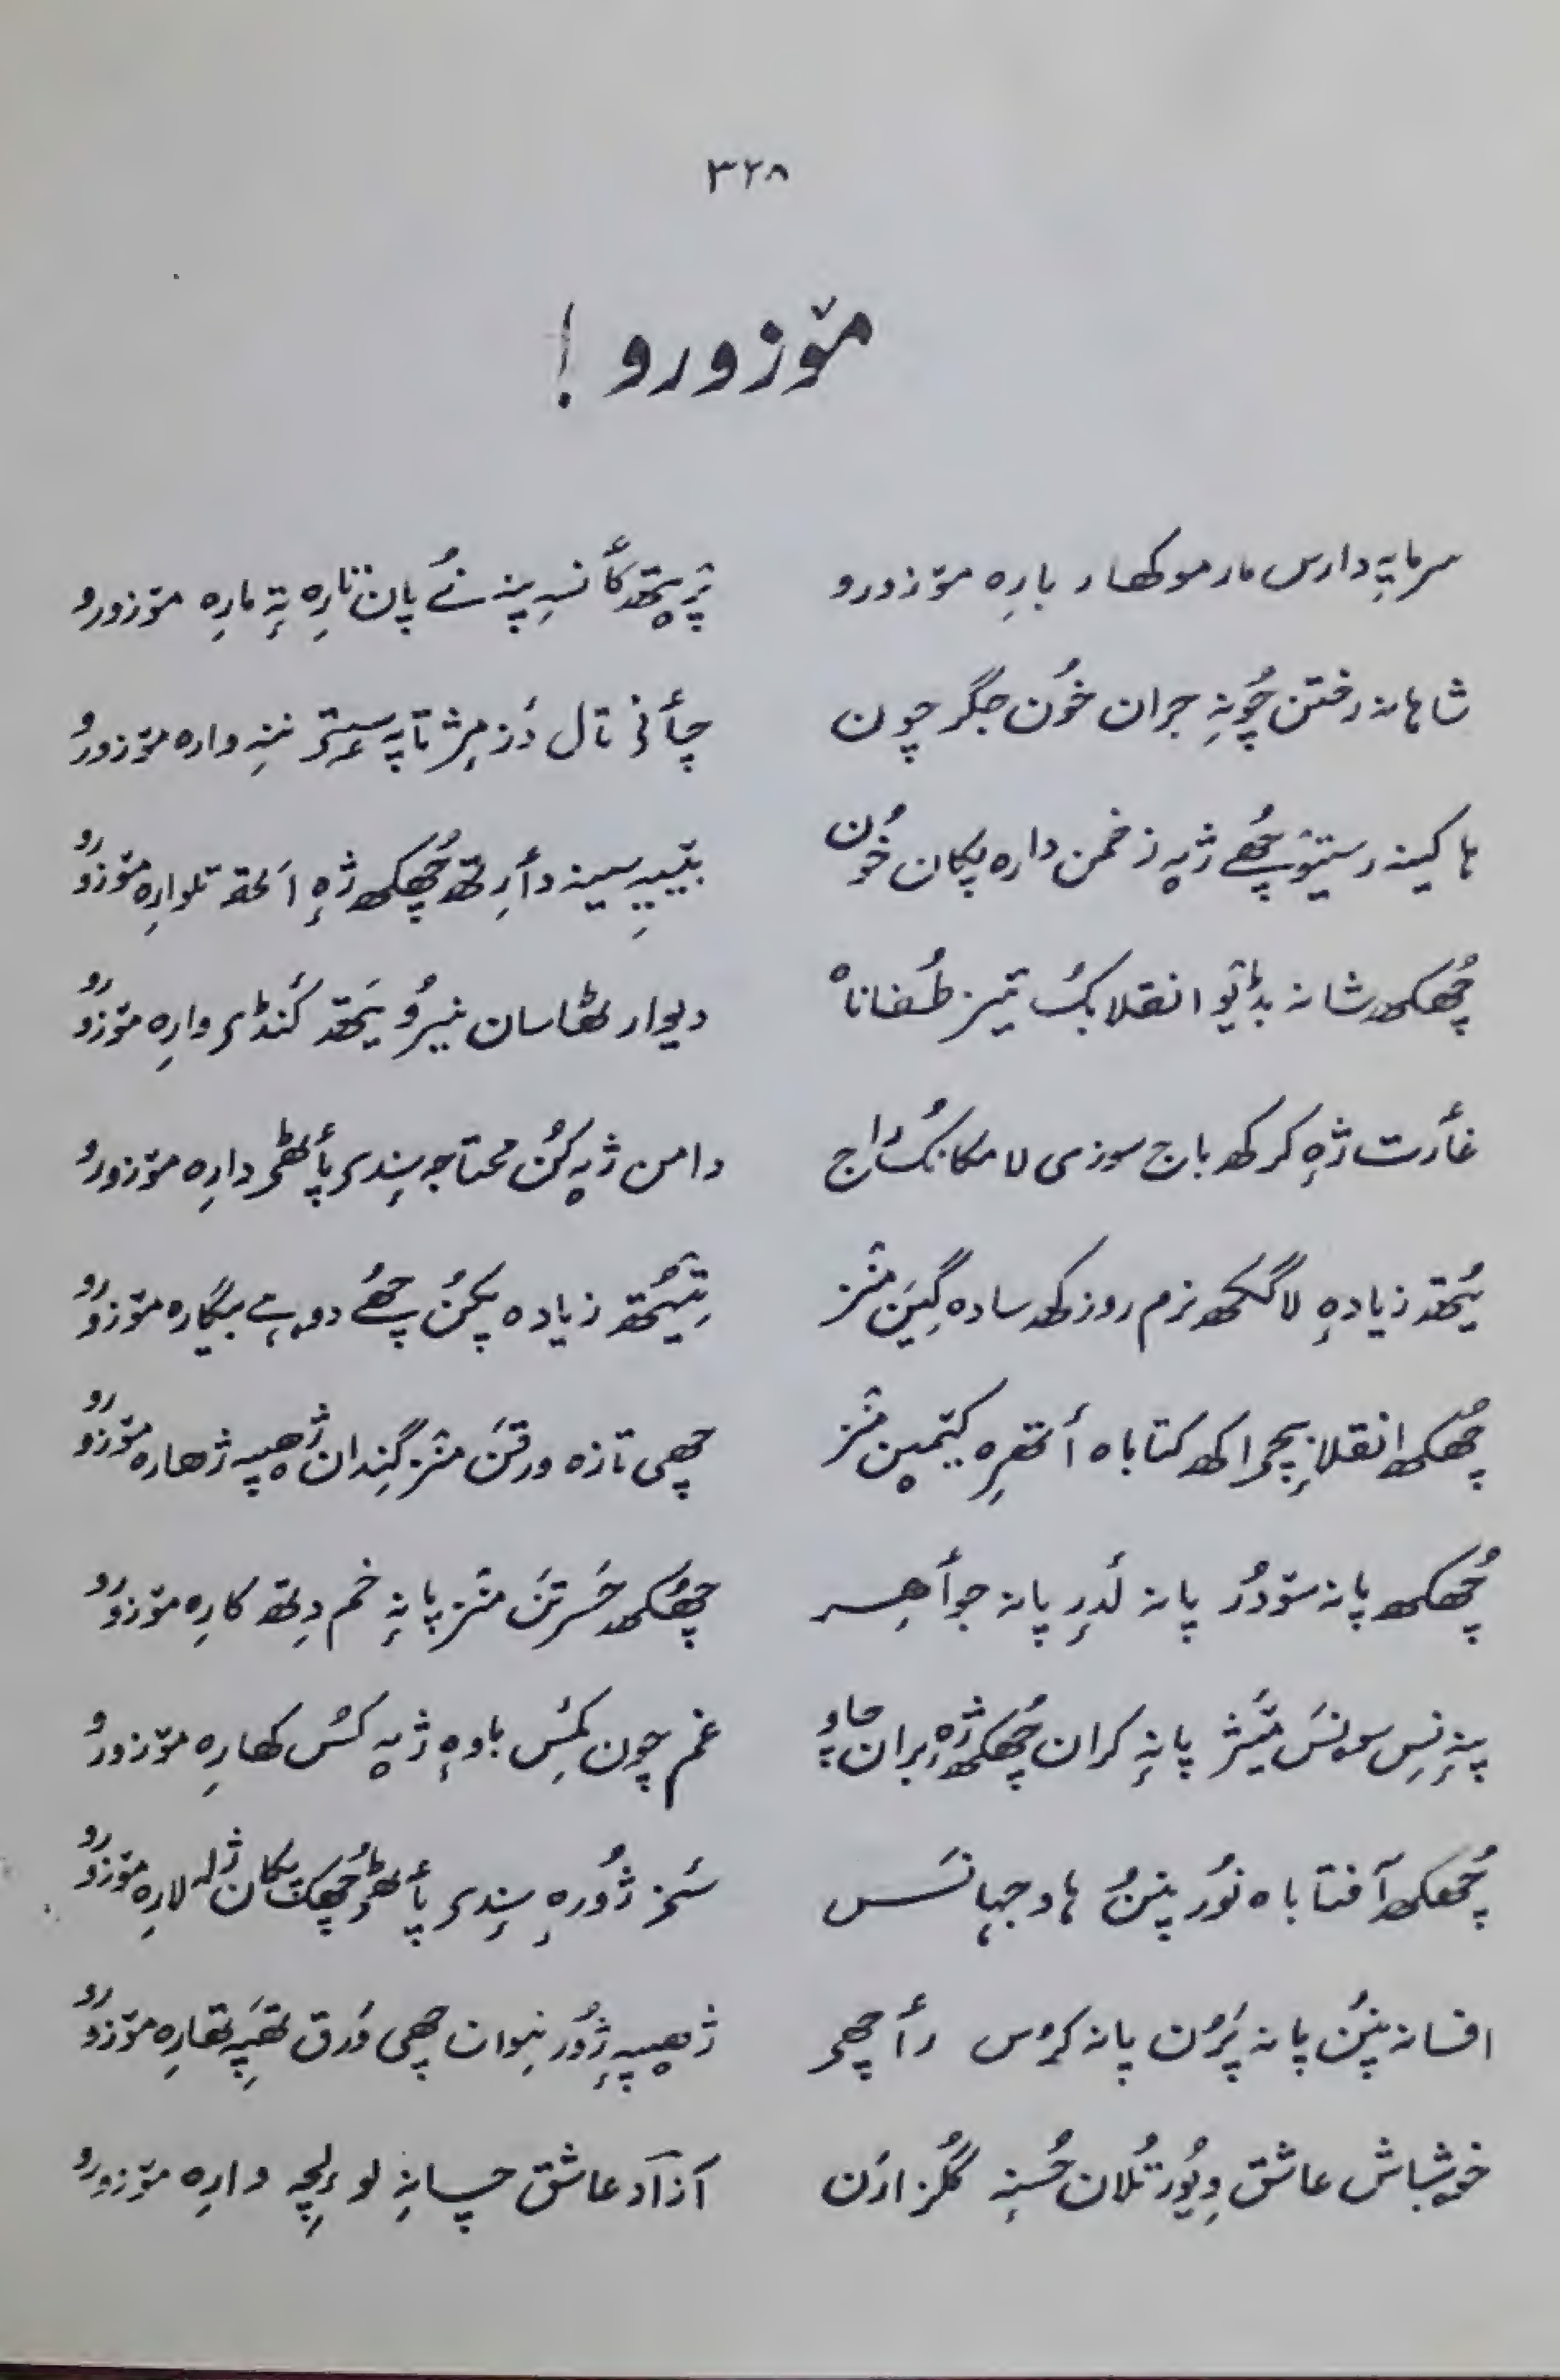 ۳۲۸
مۆزورو !
سرمایہِ دارس مار موکھار بارِہ مۆزورو
پٲنسہٕ پنہٕ نے پان نارِہ تہِ مارِہ مۆزورو
شاہانہ رفتن چُونہِ جران خُون جگر چون
چٲنی تال دَز مِژ تاپہٕ نِنہِ وارہ مۆزورو
ہا کینہ رستیو چھُے ژپہٕ زخمن دارہ پکان خُون
بییہِ سینہ دٲرِتھ چھُکھ ژہٕ اَتھ تلوارہ مۆزورو
چھُکھ شانہ بڈٮ۪و انقلابکُ تیز طُفاناہ
دیوار لٹھاسان نیرُ یَتھ کَنڈی وارِہ مۆزورو
غٲرت ژہٕ کرکھ باج سوزی لامکانکُ راج
دامن ژپہٕ کُن محتاجہ سِندی پٲٹھی دارِہ مۆزورو
یُتھ زیادہٕ لاگکھ نرم روزکھ سادہ گِیَن مَنز
تِیُتھ زیادہ پکنُ چھُے دوہے بیگارہ مۆزورو
چھُکھ انقلابچی اکھ کتاباہ أتھرِہ کیٚمیٚن مَنز
چھی تازہ ورقَن مَنز گِندان ژھیپہِ ژھارہ مۆزورو
چھُکھ پانہ سۆدُر پانہ لٔدرِ پانہ جوأہِر
چھُکھ حَسرتَن مَنز پانہٕ خم دِتھ کارِہ مۆزورو
پنہٕ نِس سونَس میٚژ پانہٕ کران چھُکھ ژہٕ بران چاو
غم چون کمِس باوہٕ ژپہٕ کُس کھارِہ مۆزورو
چھُکھ آفتاباہ نُور پننُ ہاو جہانَس
سَنز ژُورہٕ سِندی پٲٹھی چھُکھ پکان ژلہٕ لارِہ مۆزورو
افسانہ پننُ پانہ پَرُن پانہ کرُس رٲچھی
ژھیپہِ ژُور نِوان چھی وَرق تھَپہِ تھارِہ مۆزورو
خوشباش عاشق وِیُور تُلان حُسنہٕ گُلزارَن
آزاد عاشق چانہِ لولچہِ دارِہ مۆزورو